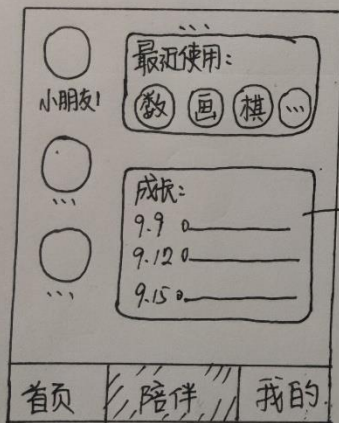 小朋友1
...
...
...
最近使用:
数 画 棋 ...
成长:
9.9
9.12
9.15
首页 陪伴 我的